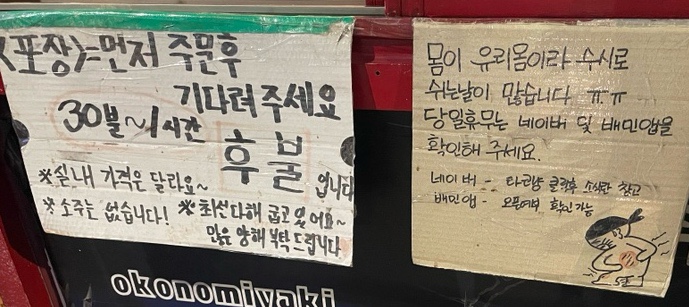 <포장>=먼저 주문후
기다려주세요
30분~1시간
후불 입니다
※실내 가격은 달라요~
※소주는 없습니다! ※최선다해 굽고있어요~
많은 양해 부탁드립니다
몸이 유리몸이라 수시로
쉬는날이 많습니다 ㅠㅠ
당일휴무는 네이버 및 배민앱을
확인해 주세요.
네이버 - 타코냥 클릭후 소식란 참고
배민앱 - 오픈여부 확인가능
okonomiyaki